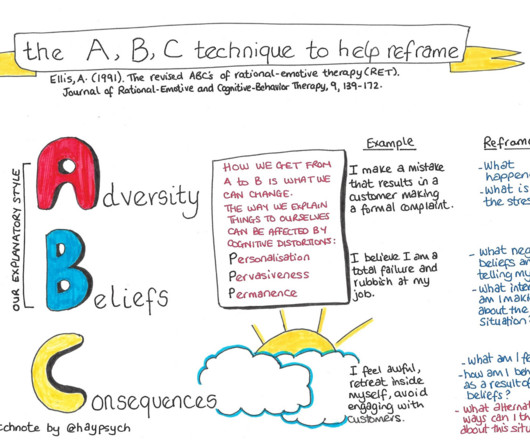 the A, B, C technique to help reframe
Ellis, A. (1991). The revised ABC's of rational-emotive therapy (RET).
Journal of Rational-Emotive and Cognitive-Behavior Therapy, 9, 139-172.
OUR EXPLANATORY STYLE
Adversity
Beliefs
Consequences
HOW WE GET FROM
A to B IS WHAT WE
CAN CHANGE.
THE WAY WE EXPLAIN
THINGS TO OURSELVES
CAN BE AFFECTED BY
COGNITIVE DISTORTIONS:
Personalisation
Pervasiveness
Permanence
Example
I make a mistake
that results in a
customer making
a formal complaint.
I believe I am a
total failure and
rubbish at my
job.
I feel awful,
retreat inside
myself, avoid
engaging with
customers.
Reframe
- What
happen
- What is
the stres
- What
beliefs
telling my
- What
am I
about the
situation?
- what am I
- how am I
as a result of
beliefs?
- what
ways can I
about this
by @haypsych